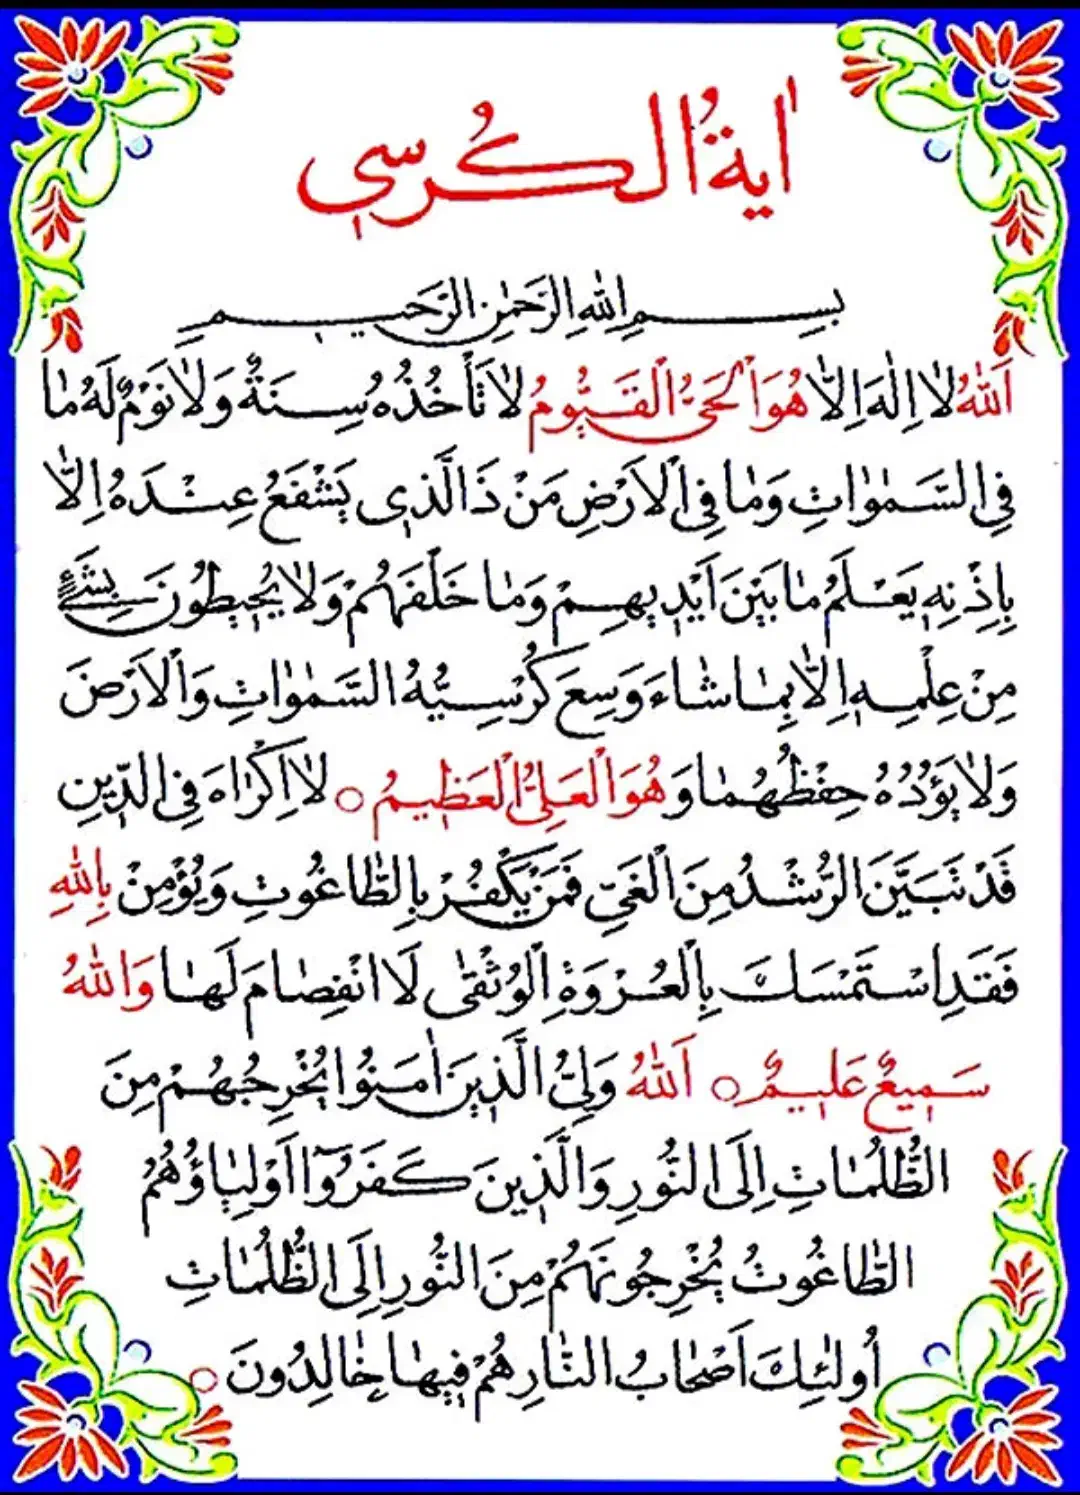 اٰيَةُ الْكُرْسِي
بِسْمِ اللّٰهِ الرَّحْمٰنِ الرَّحِيمِ
اَللّٰهُ لَا اِلٰهَ اِلَّا هُوَ الْحَيُّ الْقَيُّومُ لَا تَأْخُذُهُ سِنَةٌ وَلَا نَوْمٌ لَهُ مَا
فِي السَّمٰوَاتِ وَمَا فِي الْاَرْضِ مَنْ ذَا الَّذِي يَشْفَعُ عِنْدَهُ اِلَّا
بِاِذْنِهِ يَعْلَمُ مَا بَيْنَ اَيْدِيهِمْ وَمَا خَلْفَهُمْ وَلَا يُحِيطُونَ بِشَيْءٍ
مِنْ عِلْمِهِ اِلَّا بِمَا شَاءَ وَسِعَ كُرْسِيُّهُ السَّمٰوَاتِ وَالْاَرْضَ
وَلَا يَؤُدُهُ حِفْظُهُمَا وَهُوَ الْعَلِيُّ الْعَظِيمُ ○ لَا اِكْرَاهَ فِي الدِّينِ
قَدْ تَبَيَّنَ الرُّشْدُ مِنَ الْغَيِّ فَمَنْ يَكْفُرْ بِالطَّاغُوتِ وَيُؤْمِنْ بِاللّٰهِ
فَقَدِ اسْتَمْسَكَ بِالْعُرْوَةِ الْوُثْقٰى لَا انْفِصَامَ لَهَا وَاللّٰهُ
سَمِيعٌ عَلِيمٌ ○ اَللّٰهُ وَلِيُّ الَّذِينَ اٰمَنُوا يُخْرِجُهُمْ مِنَ
الظُّلُمَاتِ اِلَى النُّورِ وَالَّذِينَ كَفَرُوٓا اَوْلِيَاؤُهُمُ
الطَّاغُوتُ يُخْرِجُونَهُمْ مِنَ النُّورِ اِلَى الظُّلُمَاتِ
اُولٰئِكَ اَصْحَابُ النَّارِ هُمْ فِيهَا خَالِدُونَ ○